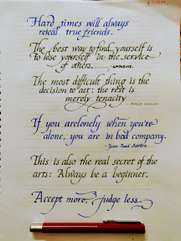 Hard times will always
reveal true friends.
The best way to find yourself is
to lose yourself in the service
of others.
The most difficult thing is the
decision to act: the rest is
merely tenacity
If you are lonely when you're
alone, you are in bad company.
Jean Paul Sartre
This is also the real secret of the
arts: Always be a beginner.
Accept more. Judge less.